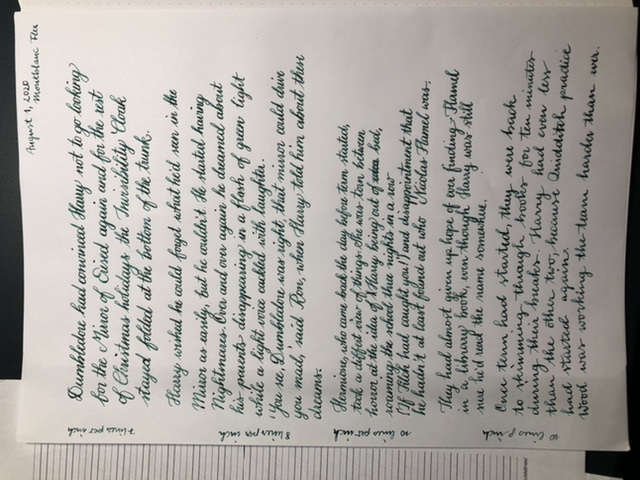 August 1, 2020
Montblanc
Dumbledore had convinced Harry not to go looking
for the Mirror of Erised again and for the rest
of Christmas holidays the Invisibility Cloak
stayed folded at the bottom of the trunk.
Harry wished he could forget what he'd seen in the
Mirror as easily, but he couldn't. He started having
Nightmares. Over and over again he dreamed about
his parents disappearing in a flash of green light
while a light voice cackled with laughter.
'You see, Dumbledore was right, that mirror could drive
you mad,' said Ron, when Harry told him about these
dreams.
7 lines per inch
8 lines per inch
Hermione, who came back the day before term started,
took a different view of things. She was torn between
horror at the idea of Harry being out of bed,
roaming the school three nights in a row
('If Filch had caught you!') and disappointment that
he hadn't at least found out who Nicolas Flamel was.
10 lines per inch
They had almost given up hope of ever finding Flamel
in a library book, even though Harry was still
sure he'd read the name somewhere.
Once term had started, they were back
to skimming through books for ten minutes
during their breaks. Harry had even less
than the other two, because Quidditch practice
had started again.
Wood was working the team harder than ever.
10 lines p inch